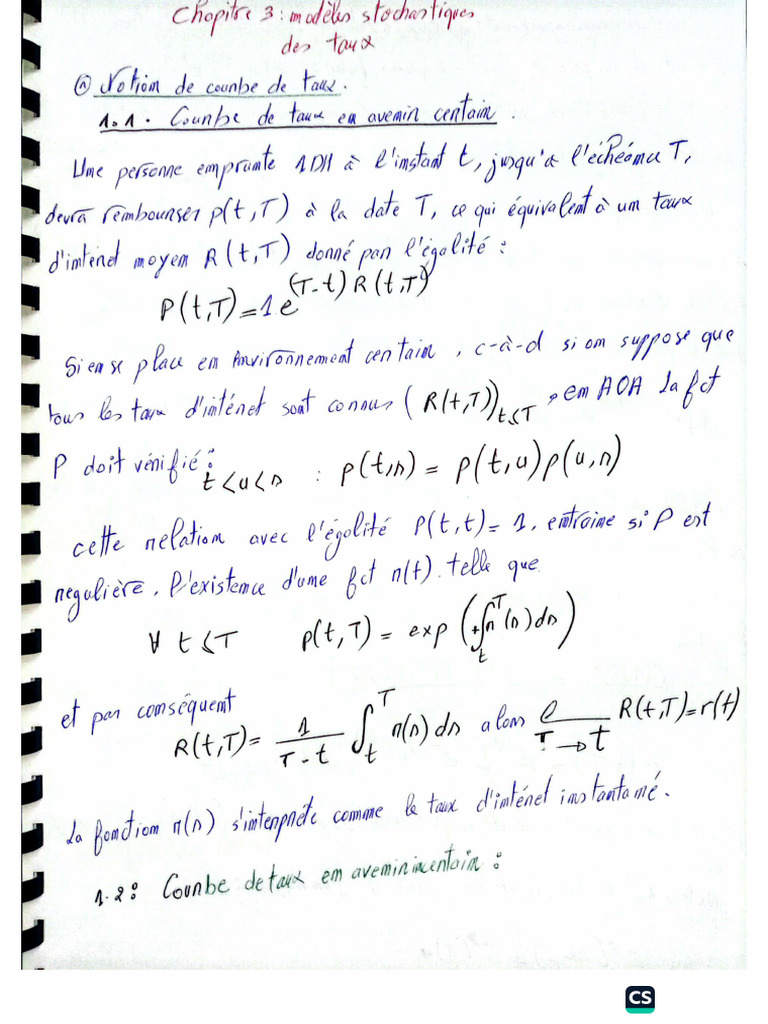 Chapitre 3: modèles stochastiques
des taux
① Notion de courbe de taux.
1.1. Courbe de taux en avenir certain.
Une personne emprunte 1DH à l'instant t, jusqu'à l'échéance T,
devra rembourser p(t,T) à la date T, ce qui équivalent à un taux
d'intéret moyen R(t,T) donné par l'égalité :
P(t,T) = 1 e^{(T-t) R(t,T)}
Si en se place en environnement certain, c-à-d si on suppose que
tous les taux d'intéret sont connus (R(t,T))_{t≤T}, en AOA la fct
P doit vérifié :
t<u<s : p(t,s) = p(t,u) p(u,s)
cette relation avec l'égalité P(t,t) = 1, entraine si P est
regulière, l'existence d'une fct r(t). telle que
∀ t≤T p(t,T) = exp (+∫_t^T r(s) ds)
et par conséquent
R(t,T) = 1/(T-t) ∫_t^T r(s) ds alors l_{T→t} R(t,T) = r(t)
La fonction r(s) s'interprète comme le taux d'intéret instantané.
1.2: Courbe de taux en avenir incertain :
CS